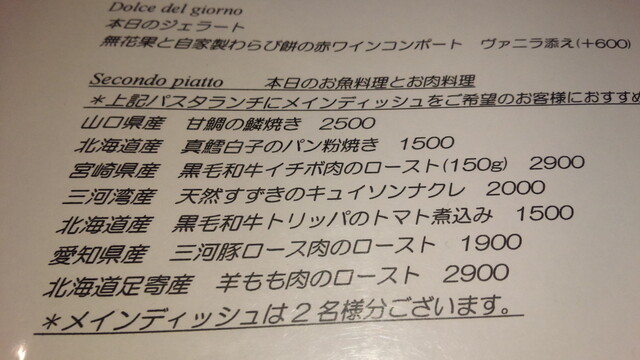 Dolce del giorno
本日のジェラート
無花果と自家製わらび餅の赤ワインコンポート ヴァニラ添え(+600)
Secondo piatto 本日のお魚料理とお肉料理
＊上記パスタランチにメインディッシュをご希望のお客様におすすめ
山口県産 甘鯛の鱗焼き 2500
北海道産 真鱈白子のパン粉焼き 1500
宮崎県産 黒毛和牛イチボ肉のロースト(150g) 2900
三河湾産 天然すずきのキュイソンナクレ 2000
北海道産 黒毛和牛トリッパのトマト煮込み 1500
愛知県産 三河豚ロース肉のロースト 1900
北海道足寄産 羊もも肉のロースト 2900
＊メインディッシュは２名様分ございます。